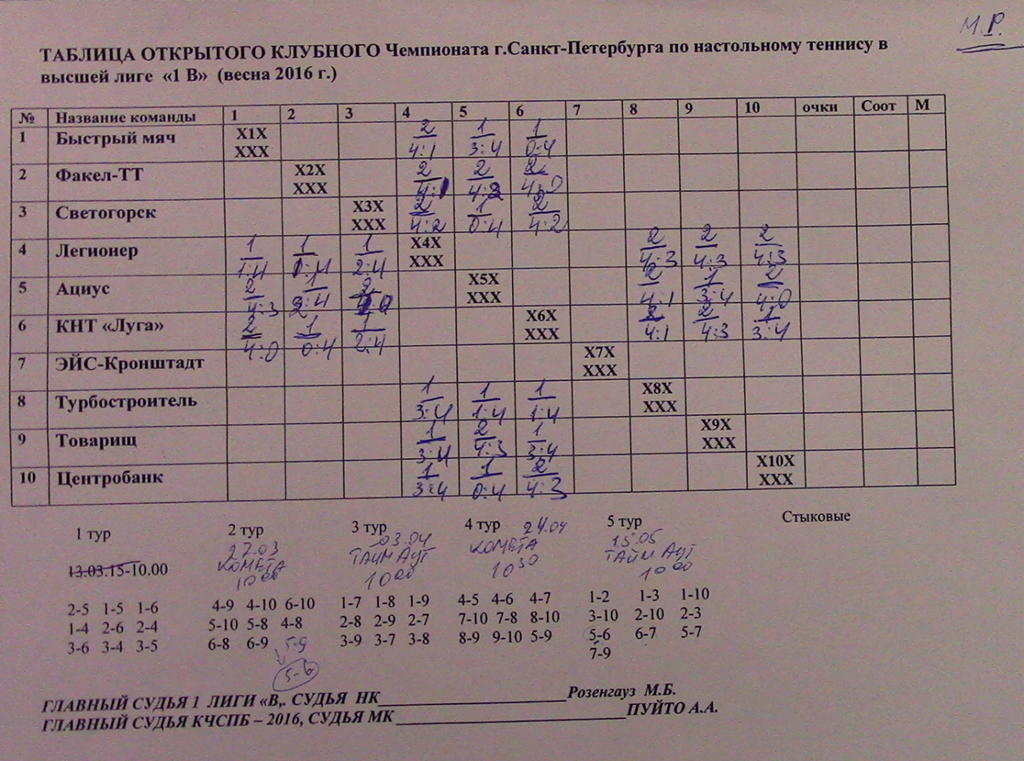 М.Р.
ТАБЛИЦА ОТКРЫТОГО КЛУБНОГО Чемпионата г.Санкт-Петербурга по настольному теннису в
высшей лиге «1 В» (весна 2016 г.)
№ Название команды 1 2 3 4 5 6 7 8 9 10 очки Соот М
1 Быстрый мяч Х1Х ХХХ 2 4:1 1 3:4 1 0:4
2 Факел-ТТ Х2Х ХХХ 2 2 4:0
3 Светогорск Х3Х ХХХ 2 4:2 1 0:4 2 4:2
4 Легионер 1 1:4 1 1 2:4 Х4Х ХХХ 2 4:3 2 4:3 2 4:3
5 Ациус 2 4:3 1 2 Х5Х ХХХ 2 4:1 1 3:4 2 4:0
6 КНТ «Луга» 2 4:0 1 0:4 1 2:4 Х6Х ХХХ 2 4:1 2 4:3 1 3:4
7 ЭЙС-Кронштадт Х7Х ХХХ
8 Турбостроитель 1 3:4 1 1:4 1 1:4 Х8Х ХХХ
9 Товарищ 1 3:4 2 4:3 1 3:4 Х9Х ХХХ
10 Центробанк 1 3:4 1 0:4 2 4:3 Х10Х ХХХ
1 тур 2 тур 3 тур 4 тур 24.04 5 тур Стыковые
27.03 03.04 КОМЕТА 15.05
13.03.15-10.00 КОМЕТА ТАЙМ АУТ 10 30 ТАЙМ АУТ
10 00 10 00 10 00
2-5 1-5 1-6 4-9 4-10 6-10 1-7 1-8 1-9 4-5 4-6 4-7 1-2 1-3 1-10
1-4 2-6 2-4 5-10 5-8 4-8 2-8 2-9 2-7 7-10 7-8 8-10 3-10 2-10 2-3
3-6 3-4 3-5 6-8 6-9 5-9 3-9 3-7 3-8 8-9 9-10 5-9 5-6 6-7 5-7
5-6 7-9
ГЛАВНЫЙ СУДЬЯ 1 ЛИГИ «В,. СУДЬЯ НК____________________Розенгауз М.Б.
ГЛАВНЫЙ СУДЬЯ КЧСПБ – 2016, СУДЬЯ МК ________________________ПУЙТО А.А.